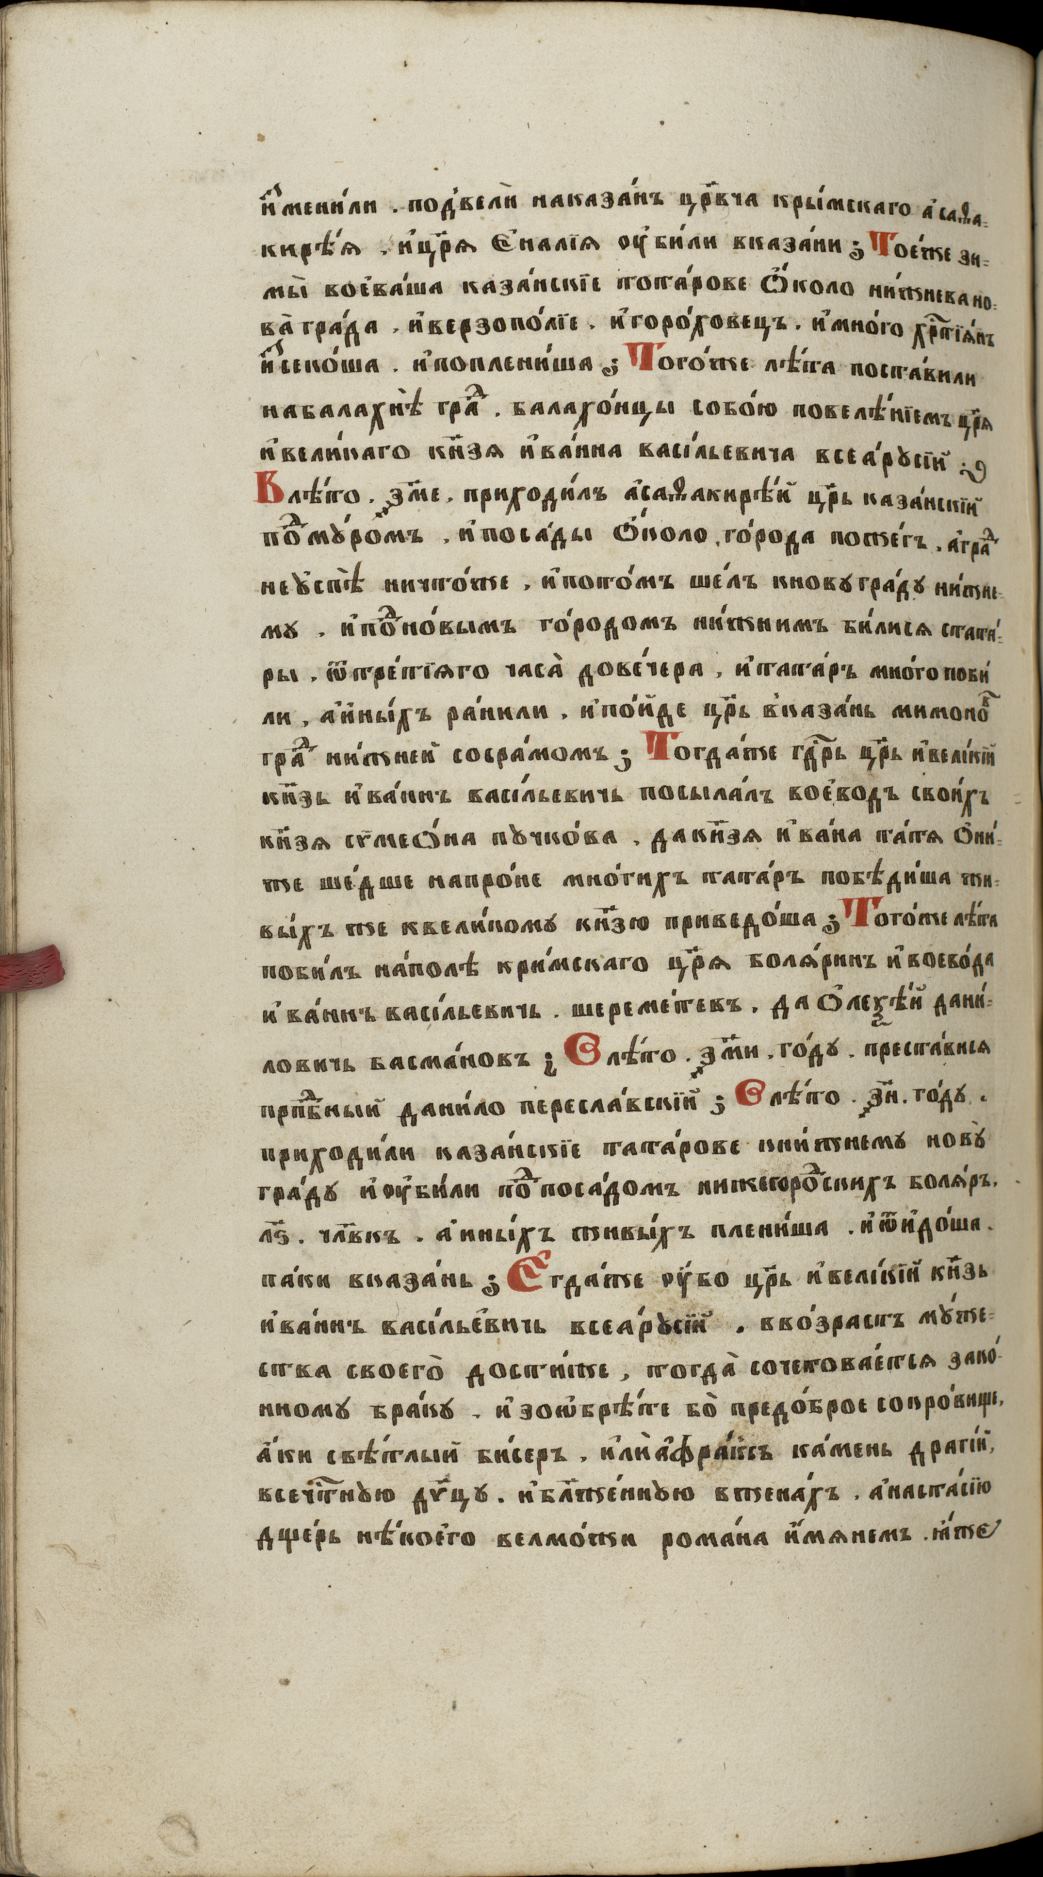 и҆змени́ли . подвели̑ наказа́нъ цр҃вча кры́мскаго а҆саѳа-
кирѣ́я . и҆цр҃я є҆налі́я ᲂу҆би́ли вказа́ни ; Тое́же зи-
мы̀ вое҆ва́ша каза́нскїе тота́рове ѻ҆́коло ни́жнева но-
ва̀ гра́да . и҆верзопо́лїе . и҆горо́ховецъ . и҆мно́го хрⷭ҇тїя́нъ
и҆зсеко́ша . и҆поплени́ша ; Того́же лѣ́та поста́вили
набалахнѣ̀ граⷣ . балахо́нцы собо́ю повелѣ́нїемъ цр҃я
и҆вели́каго кн҃зя и҆ва́нна васі́льевича всеа́рꙋсїй .
Влѣ́то . зм҃е . приходи́лъ а҆саѳакирѣ́й цр҃ь каза́нскїй
поⷣмꙋ́ромъ . и҆поса́ды ѻ҆́коло го́рода поже́гъ . а҆граⷣ
неꙋ҆спѣ̀ ничто́же . и҆пото́мъ ше́лъ кновꙋгра́дꙋ ни́жне-
мꙋ . и҆поⷣно́вымъ го́родомъ ни́жнимъ би́лися стата́-
ры . ѿтре́тїяго часа̀ дове́чера . и҆тата́ръ мно́го поби́
ли . а҆и҆ны́хъ ра́нили . и҆по́йде цр҃ь вказа́нь мимоноⷡ
граⷣ ни́жней сосра́момъ ; Тогда́же гдⷭ҇рь цр҃ь и҆вели́кїй
кн҃зь и҆ва́ннъ васі́льевичь посыла́лъ вое҆во́дъ свои́хъ
кн҃зя сѵмеѻ́на пꙋчко́ва . дакн҃зя и҆ва́на та́тя ѻ҆ни́-
же ше́дше напро́не мно́гихъ тата́ръ побѣди́ша жи-
вы́хъ же квели́комꙋ кн҃зю приведо́ша ; Того́же лѣ́та
поби́лъ на́полѣ кри́мскаго цр҃я боля́ринъ и҆воево́да
и҆ва́ннъ васі́льевичь . шереме́тевъ . да ѻ҆леѯѣ́й дани́-
ловичь басма́новъ ; Влѣ́то . зм҃и . го́дꙋ . преста́вися
прпⷣбный дани́ло пересла́вскїй ; Влѣ́то . зн҃ . го́дꙋ .
приходи́ли каза́нскїе тата́рове кни́жнемꙋ новꙋ̀
гра́дꙋ и҆ᲂу҆би́ли поⷣпоса́домъ нижегороⷣскихъ боля́ръ .
лѕ҃ . чл҃вкъ . а҆и҆ны́хъ живы́хъ плени́ша . и҆ѿи҆до́ша .
па́ки вказа́нь ; Егда́же ᲂу҆́бо цр҃ь и҆вели́кїй кн҃зь
и҆ва́ннъ васі́льевичь всеа́рꙋсїй . вво́зрастъ мꙋ́же-
ства своего̀ дости́же , тогда̀ сочетова́ется зако́-
нномꙋ бра́кꙋ . и҆зѡ҆брѣ́те бо̀ предо́брое сокро́вище ,
а҆́ки свѣ́тлый би́серъ . и҆лѝ а҆фра́ксъ ка́мень драгі́й ,
всечⷭ҇тнꙋю дв҃цꙋ . и҆бл҃же́ннꙋю вжена́хъ . а҆наста́сїю
дще́рь нѣ́коего велмо́жи рома́на и҆́мянемъ . ꙗ҆́же